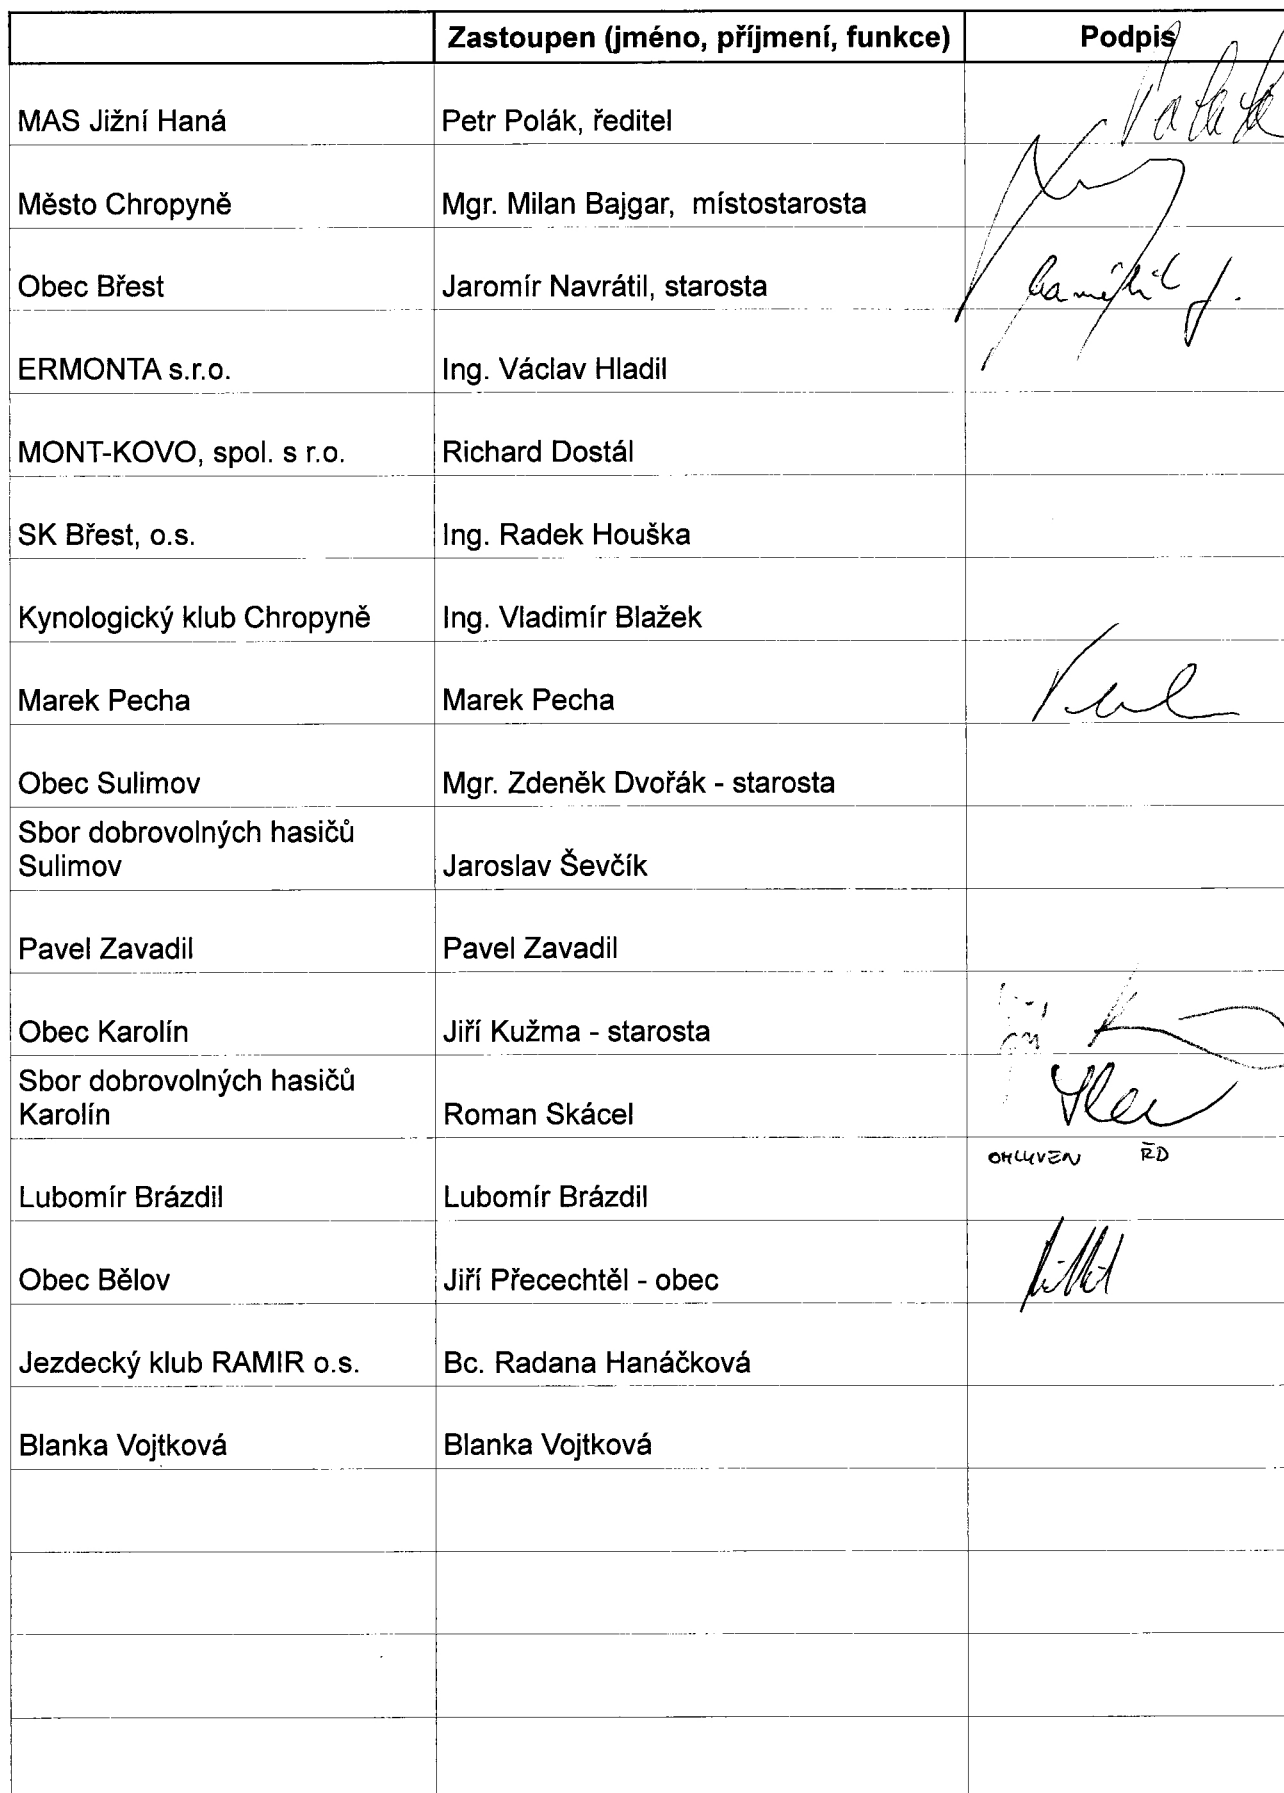 Zastoupen (jméno, příjmení, funkce) Podpis
MAS Jižní Haná Petr Polák, ředitel
Město Chropyně Mgr. Milan Bajgar, místostarosta
Obec Břest Jaromír Navrátil, starosta
ERMONTA s.r.o. Ing. Václav Hladil
MONT-KOVO, spol. s r.o. Richard Dostál
SK Břest, o.s. Ing. Radek Houška
Kynologický klub Chropyně Ing. Vladimír Blažek
Marek Pecha Marek Pecha
Obec Sulimov Mgr. Zdeněk Dvořák - starosta
Sbor dobrovolných hasičů
Sulimov Jaroslav Ševčík
Pavel Zavadil Pavel Zavadil
Obec Karolín Jiří Kužma - starosta
Sbor dobrovolných hasičů
Karolín Roman Skácel
OMLUVEN
Lubomír Brázdil Lubomír Brázdil
Obec Bělov Jiří Přecechtěl - obec
Jezdecký klub RAMIR o.s. Bc. Radana Hanáčková
Blanka Vojtková Blanka Vojtková